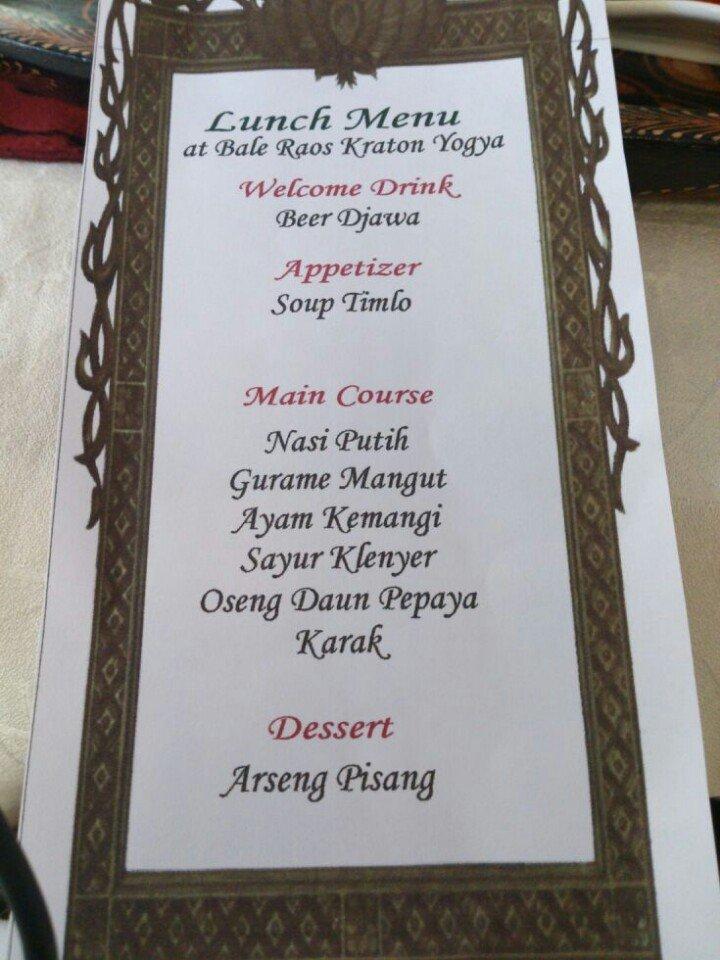 Lunch Menu
at Bale Raos Kraton Yogya
Welcome Drink
Beer Djawa
Appetizer
Soup Timlo
Main Course
Nasi Putih
Gurame Mangut
Ayam Kemangi
Sayur Klenyer
Oseng Daun Pepaya
Karak
Dessert
Arseng Pisang